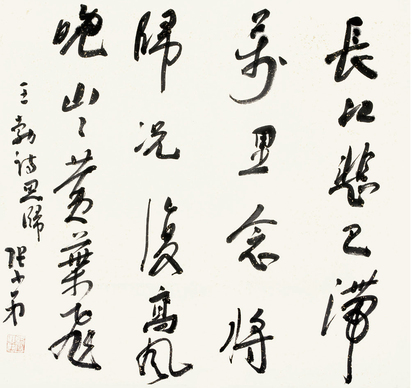 長江悲已滯
萬里念將
歸況復高風
晚山〻黃葉飛
王勃詩思歸